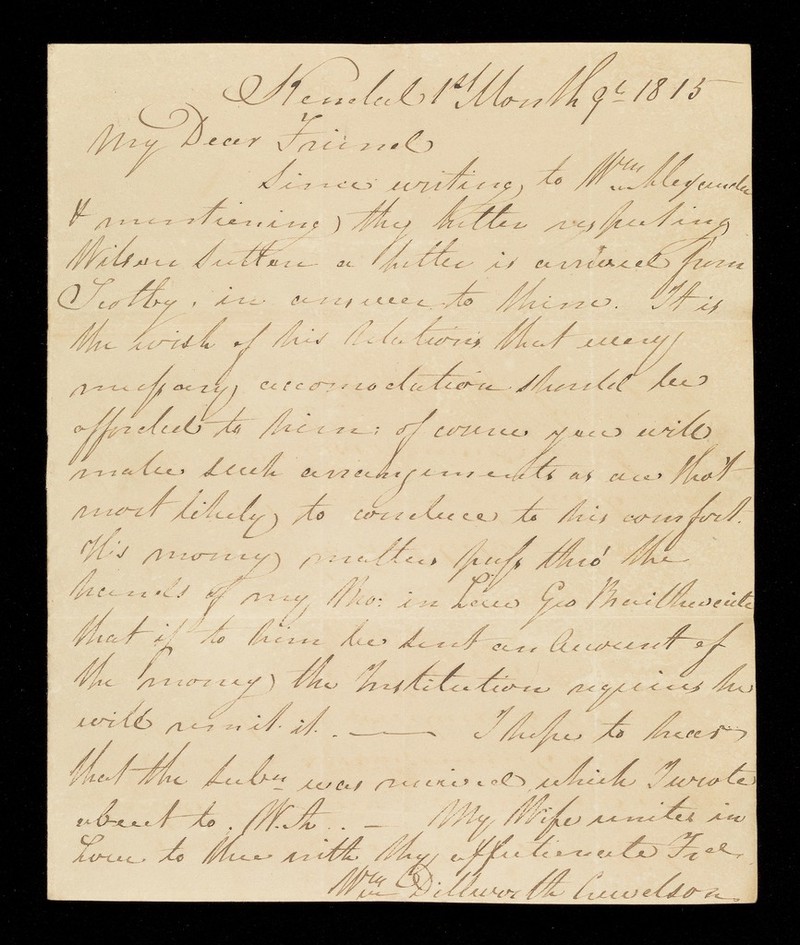 Kendal 1st Month 9th 1815
My Dear Friend
Since writing to Wm Alexander
& mentioning thy letter respecting
Wilson Sutton a letter is arrived from
Scotby, in answer to them. It is
the wish of his Relations that every
necessary accomodation should be
afforded to him: of course you will
make such arrangements as are tho't
most likely to conduce to his comfort.
His money matters pass thro' the
hands of my Bro: in Law Geo Braithwaite
that if to him be sent an Account of
the money the Institution requires he
will remit it. — I hope to hear
that the subn was received which I wrote
about to W.A. — My Wife unites in
Love to thee with thy affectionate Frd.
Wm Dillworth Crewdson